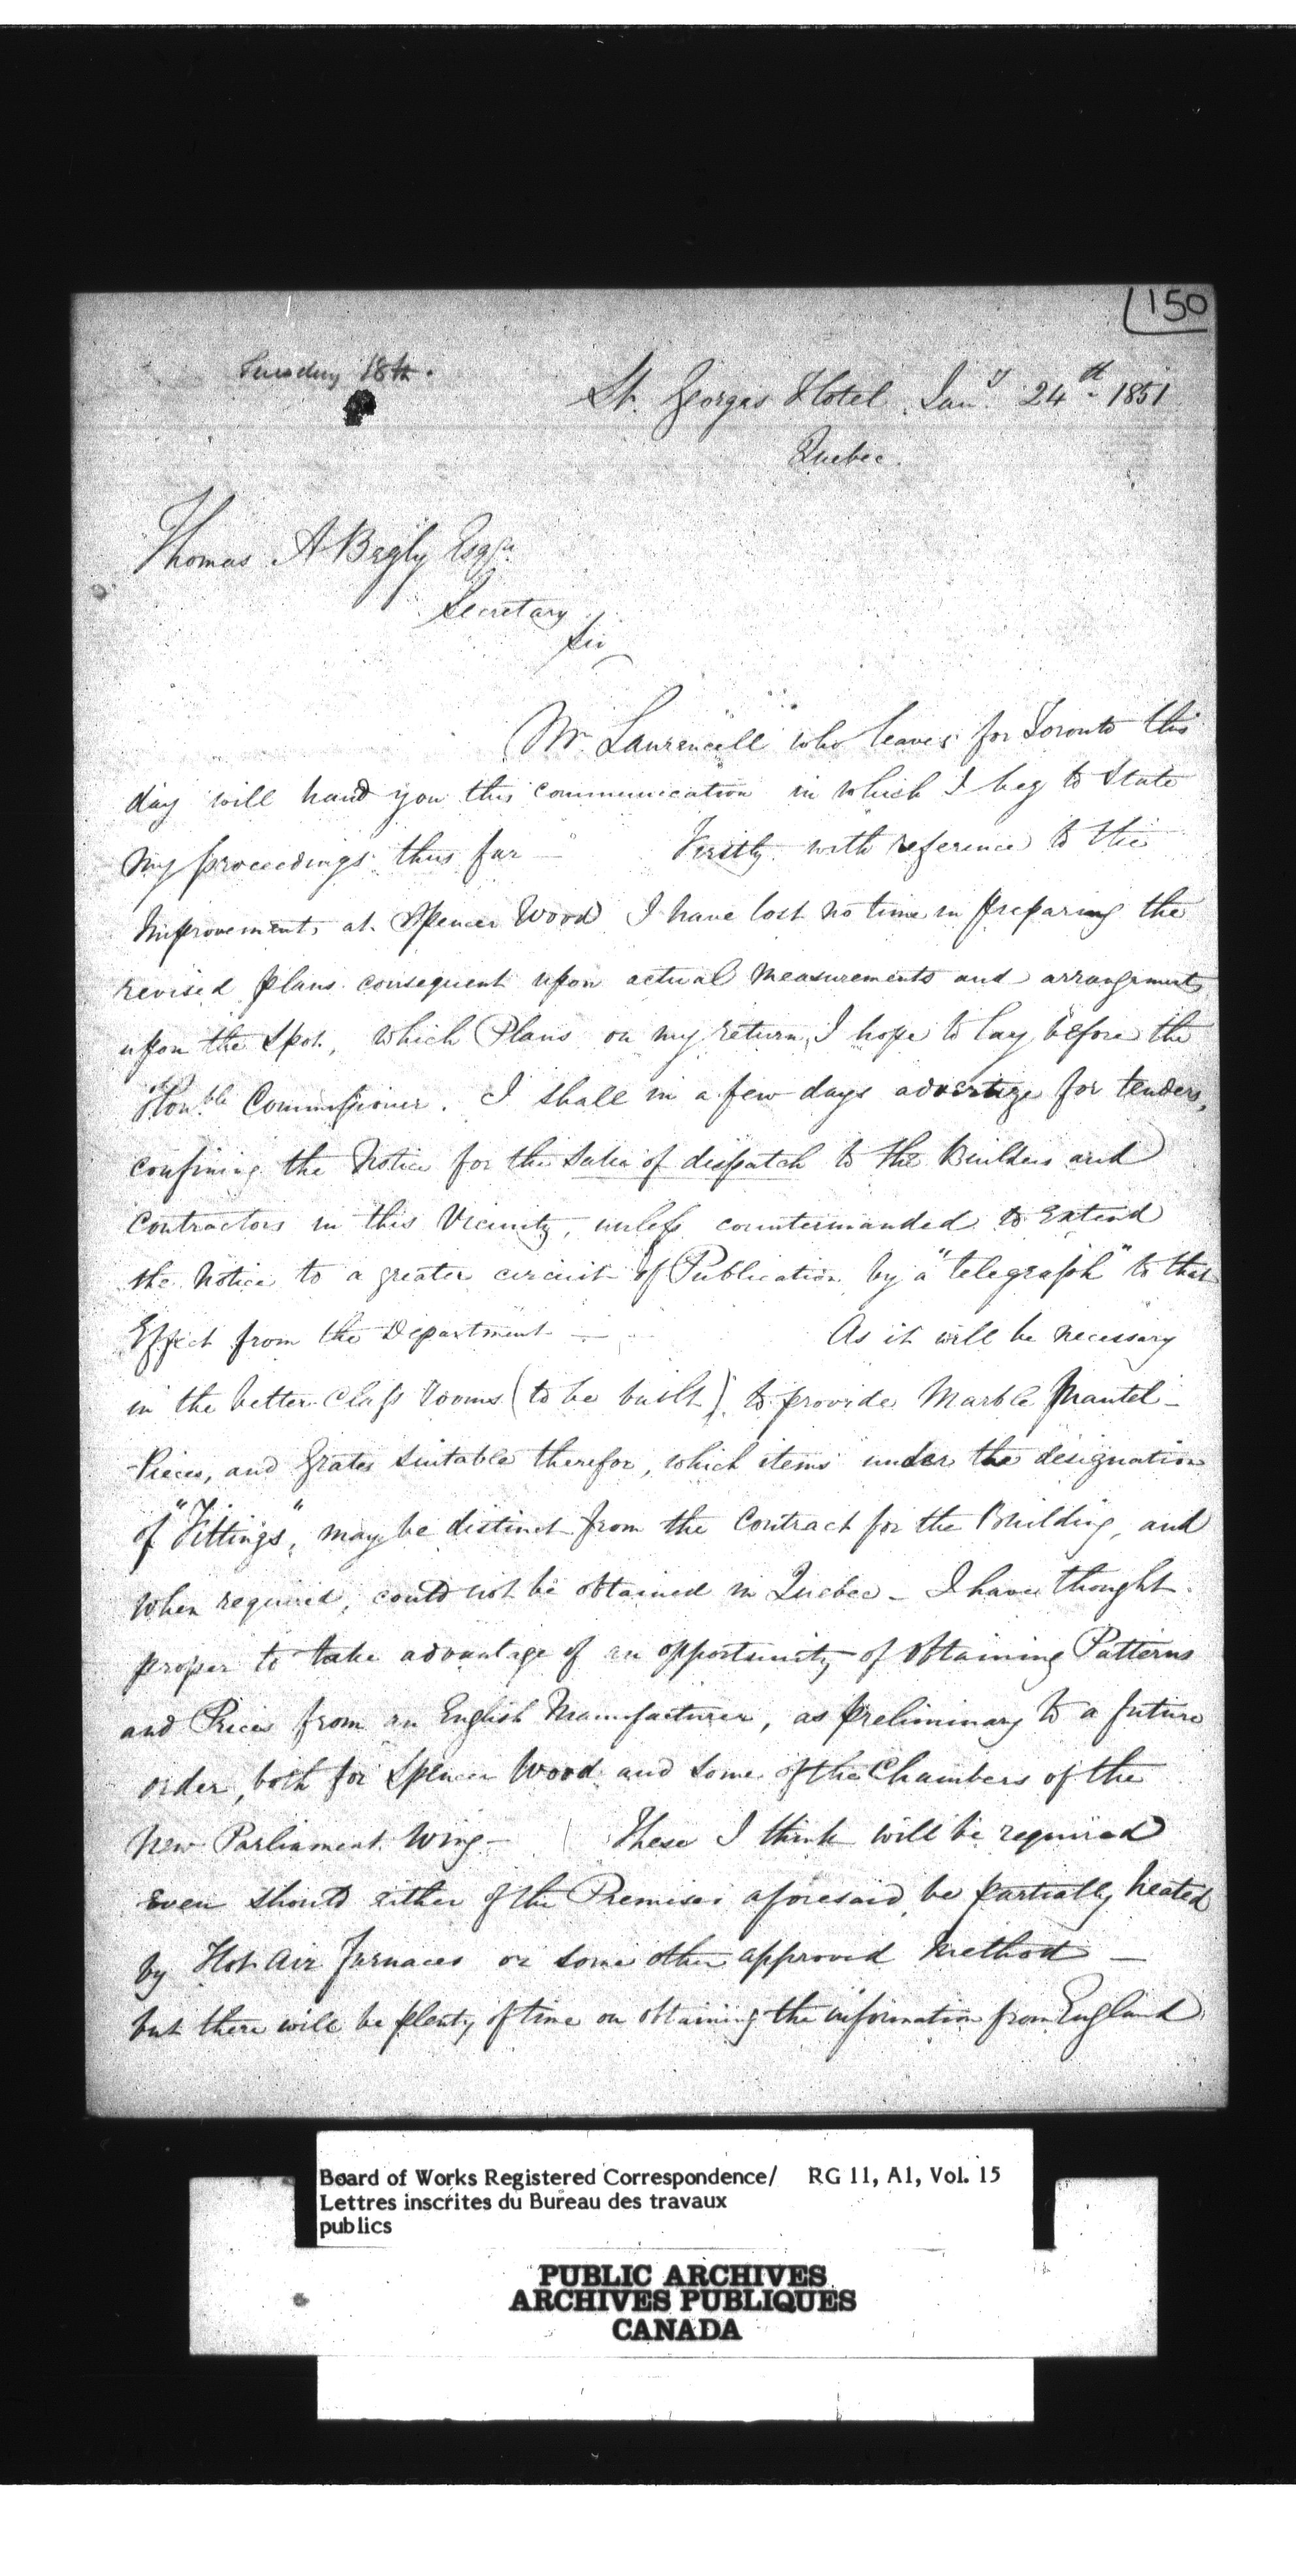 150
Tuesday 18th.
St. Georges Hotel Jany. 24th 1851
Quebec.
Thomas A Begly Esqre
Secretary
Sir
Mr. Laurencell who leaves for Toronto this
day will hand you this communication in which I beg to State
my proceedings thus far — Firstly with reference to the
Improvements at Spencer Wood I have lost no time in preparing the
revised plans consequent upon actual measurements and arrangements
upon the Spot, which Plans on my return, I hope to lay before the
Honble Commissioner. I shall in a few days advertize for tenders,
confining the Notice for the Sake of dispatch to the Builders and
Contractors in this Vicinity, unless countermanded to extend
the Notice to a greater circuit of Publication by a "telegraph" to that
Effect from the Department — As it will be necessary
in the better Class rooms (to be built) to provide Marble Mantel-
Pieces, and Grates suitable therefor, which items under the designation
of "Fittings", may be distinct from the Contract for the Building, and
when required, could not be obtained in Quebec - I have thought
proper to take advantage of an opportunity of obtaining Patterns
and Prices from an English Manufacturer, as preliminary to a future
order, both for Spencer Wood and some of the Chambers of the
New Parliament Wing - These I think will be required
Even should either of the Premises aforesaid be partially heated
by Hot Air furnaces or some other approved Method —
but there will be plenty of time on obtaining the information from England
Board of Works Registered Correspondence/ RG 11, A1, Vol. 15
Lettres inscrites du Bureau des travaux
publics
PUBLIC ARCHIVES
ARCHIVES PUBLIQUES
CANADA